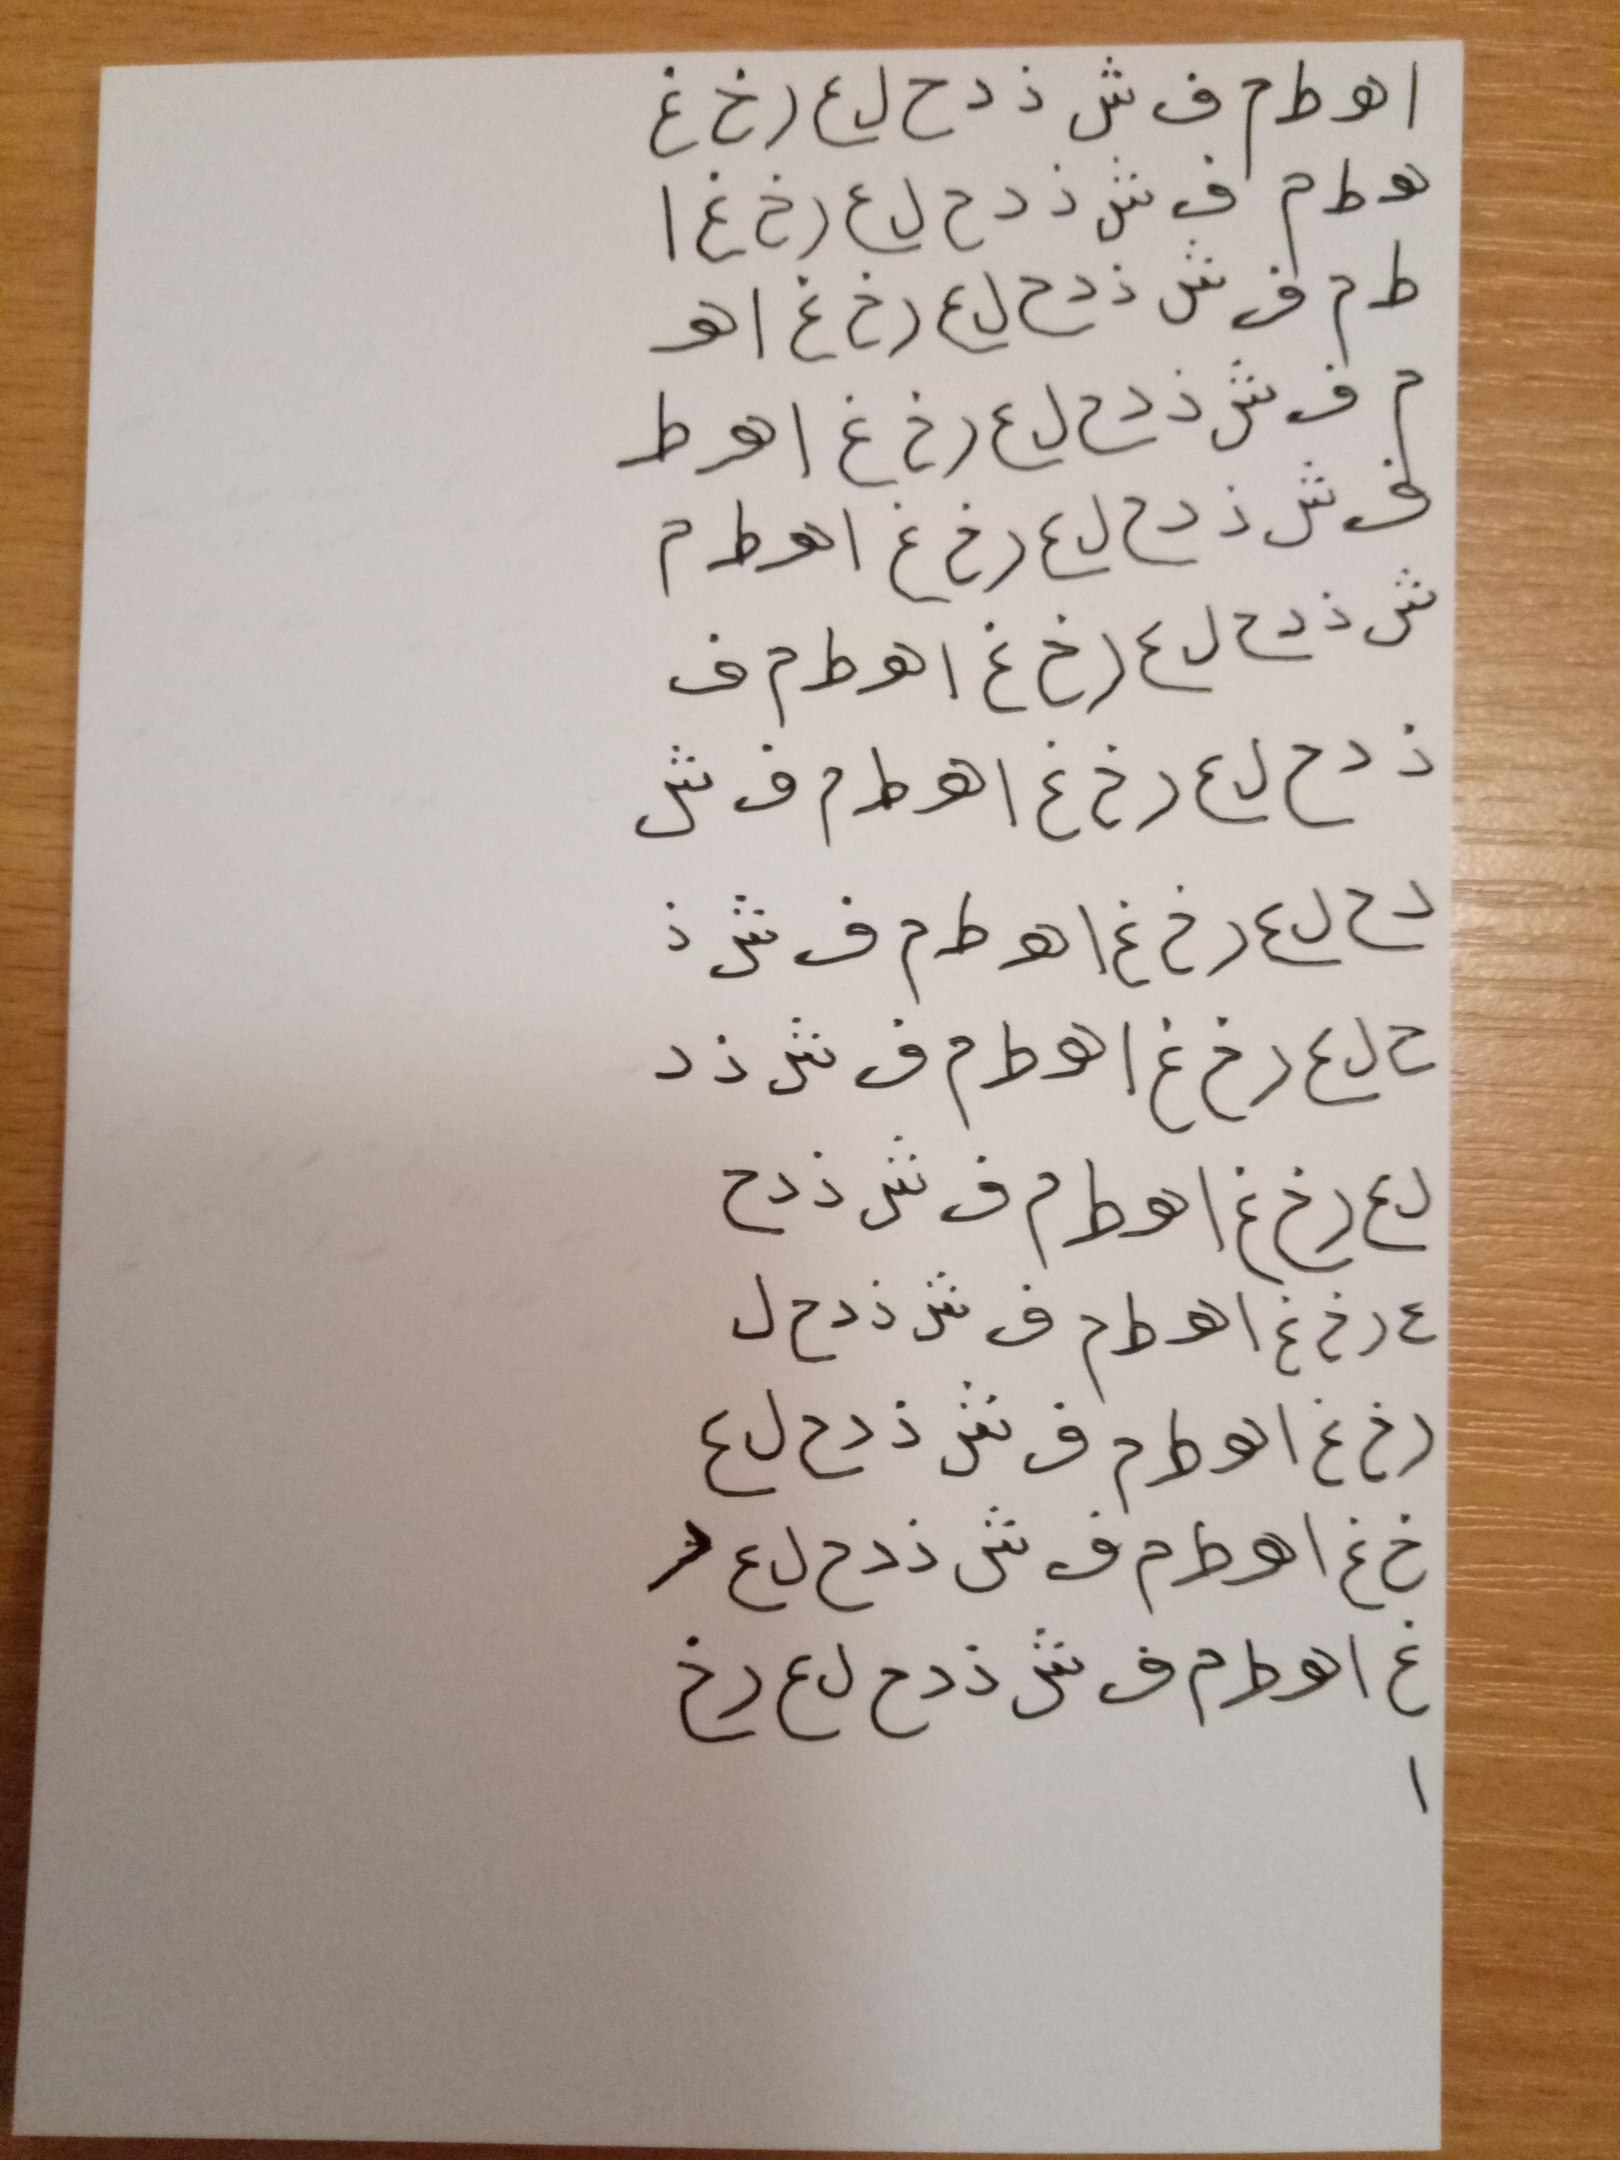 ا ه ط م ف ش ذ د ح ل ع ر خ غ
ه ط م ف ش ذ د ح ل ع ر خ غ ا
ط م ف ش ذ د ح ل ع ر خ غ ا ه
م ف ش ذ د ح ل ع ر خ غ ا ه ط
ف ش ذ د ح ل ع ر خ غ ا ه ط م
ش ذ د ح ل ع ر خ غ ا ه ط م ف
ذ د ح ل ع ر خ غ ا ه ط م ف ش
د ح ل ع ر خ غ ا ه ط م ف ش ذ
ح ل ع ر خ غ ا ه ط م ف ش ذ د
ل ع ر خ غ ا ه ط م ف ش ذ د ح
ع ر خ غ ا ه ط م ف ش ذ د ح ل
ر خ غ ا ه ط م ف ش ذ د ح ل ع
خ غ ا ه ط م ف ش ذ د ح ل ع ر
غ ا ه ط م ف ش ذ د ح ل ع ر خ
ا